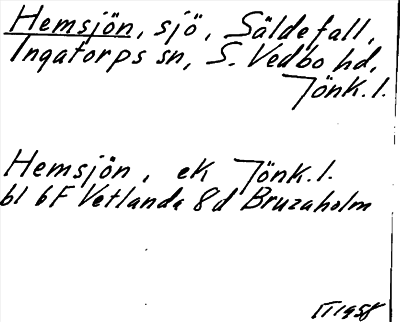 Hemsjön, sjö, Säldefall,
Ingatorps sn, S. Vedbo hd,
Jönk.l.
Hemsjön, ek Jönk.l.
bl 6F Vetlanda 8d Bruzaholm
1958